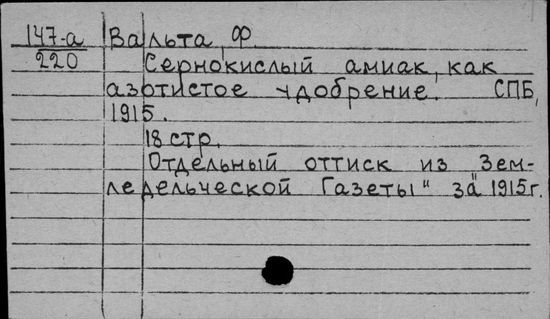 147-а
220
Вальта, Ф.
Сернокислый амиак, как
азотистое удобрение. СПБ,
1915.
18 стр.
Отдельный оттиск из "Зем-
ледельческой Газеты" за 1915г.